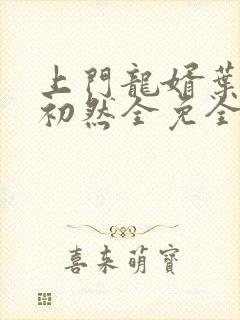 上門龍婿葉
初然全免全
喜来萌寶